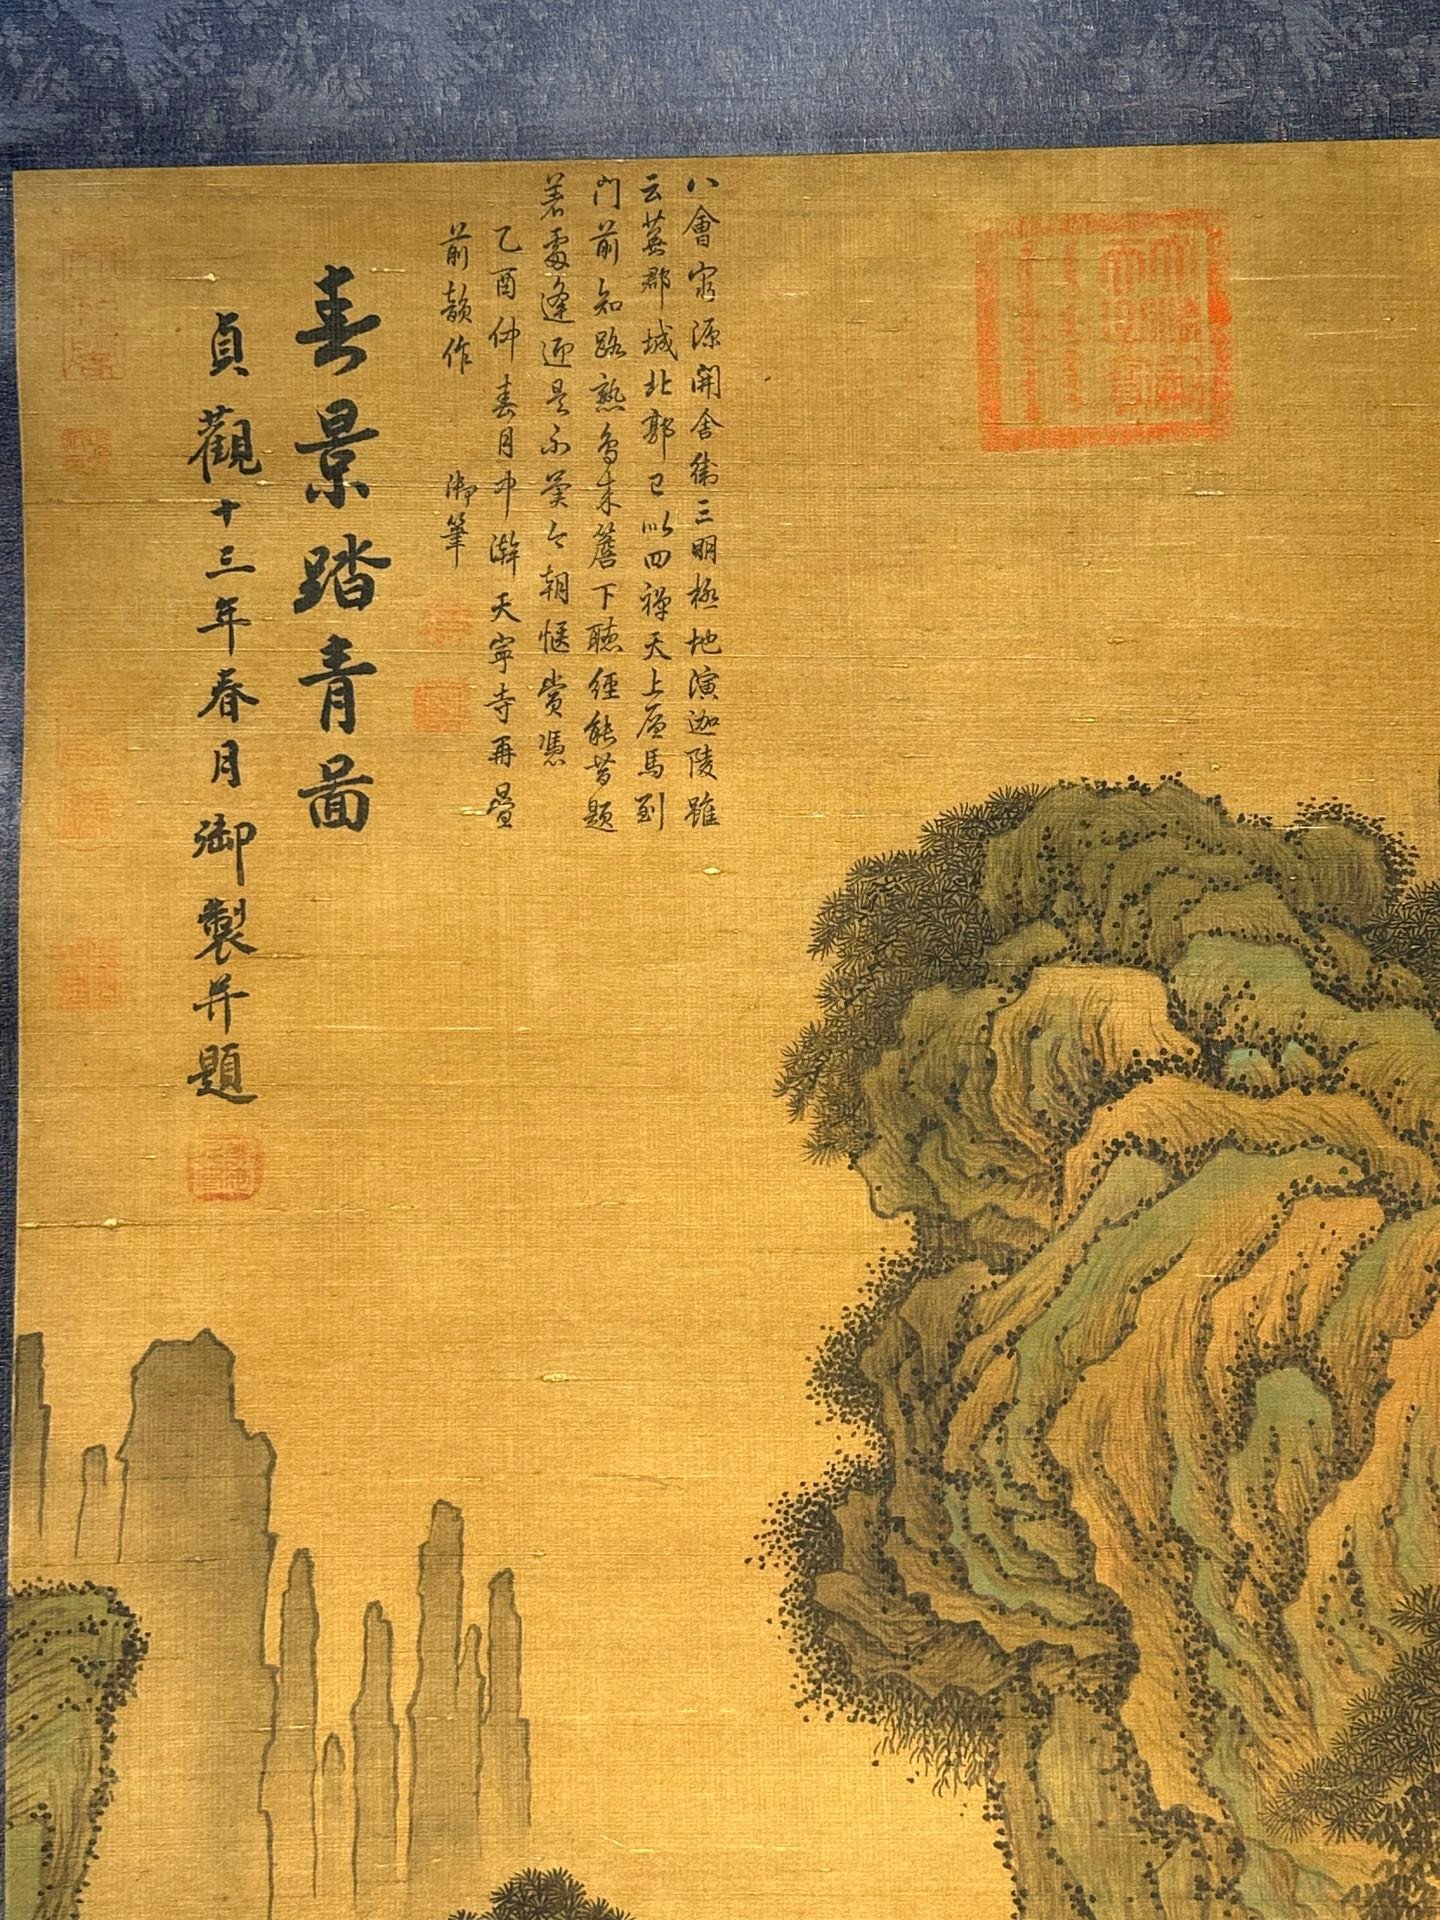 八會家源開舍衛三明極地演迦陵雖
云蕪郡城北郭已以四禪天上層馬到
門前知路熟鳥來簷下聽經能昔題
著處逢迎是不異今朝愜賞憑
乙酉仲春月中澣天寧寺再疊
前韻作
御筆
春景踏青圖
貞觀十三年春月御製并題